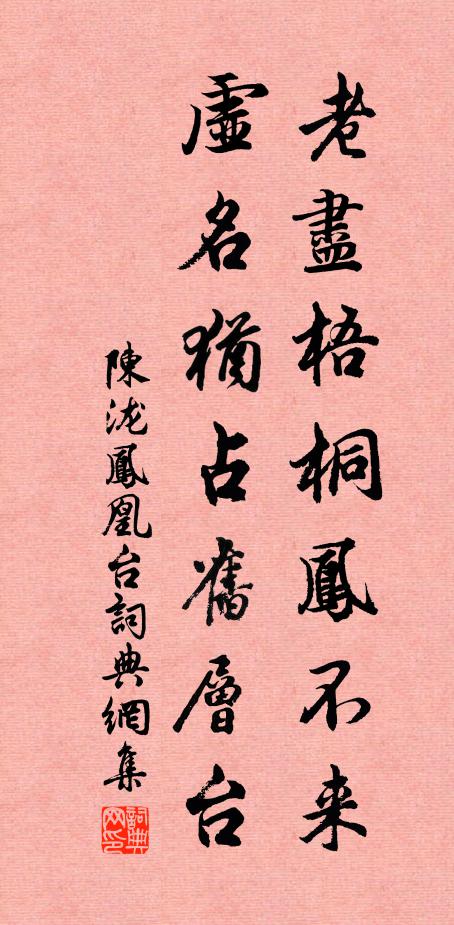 老盡梧桐鳳不来
虛名猶占舊層台
陳泷鳳凰台詞典網集
詞典网印